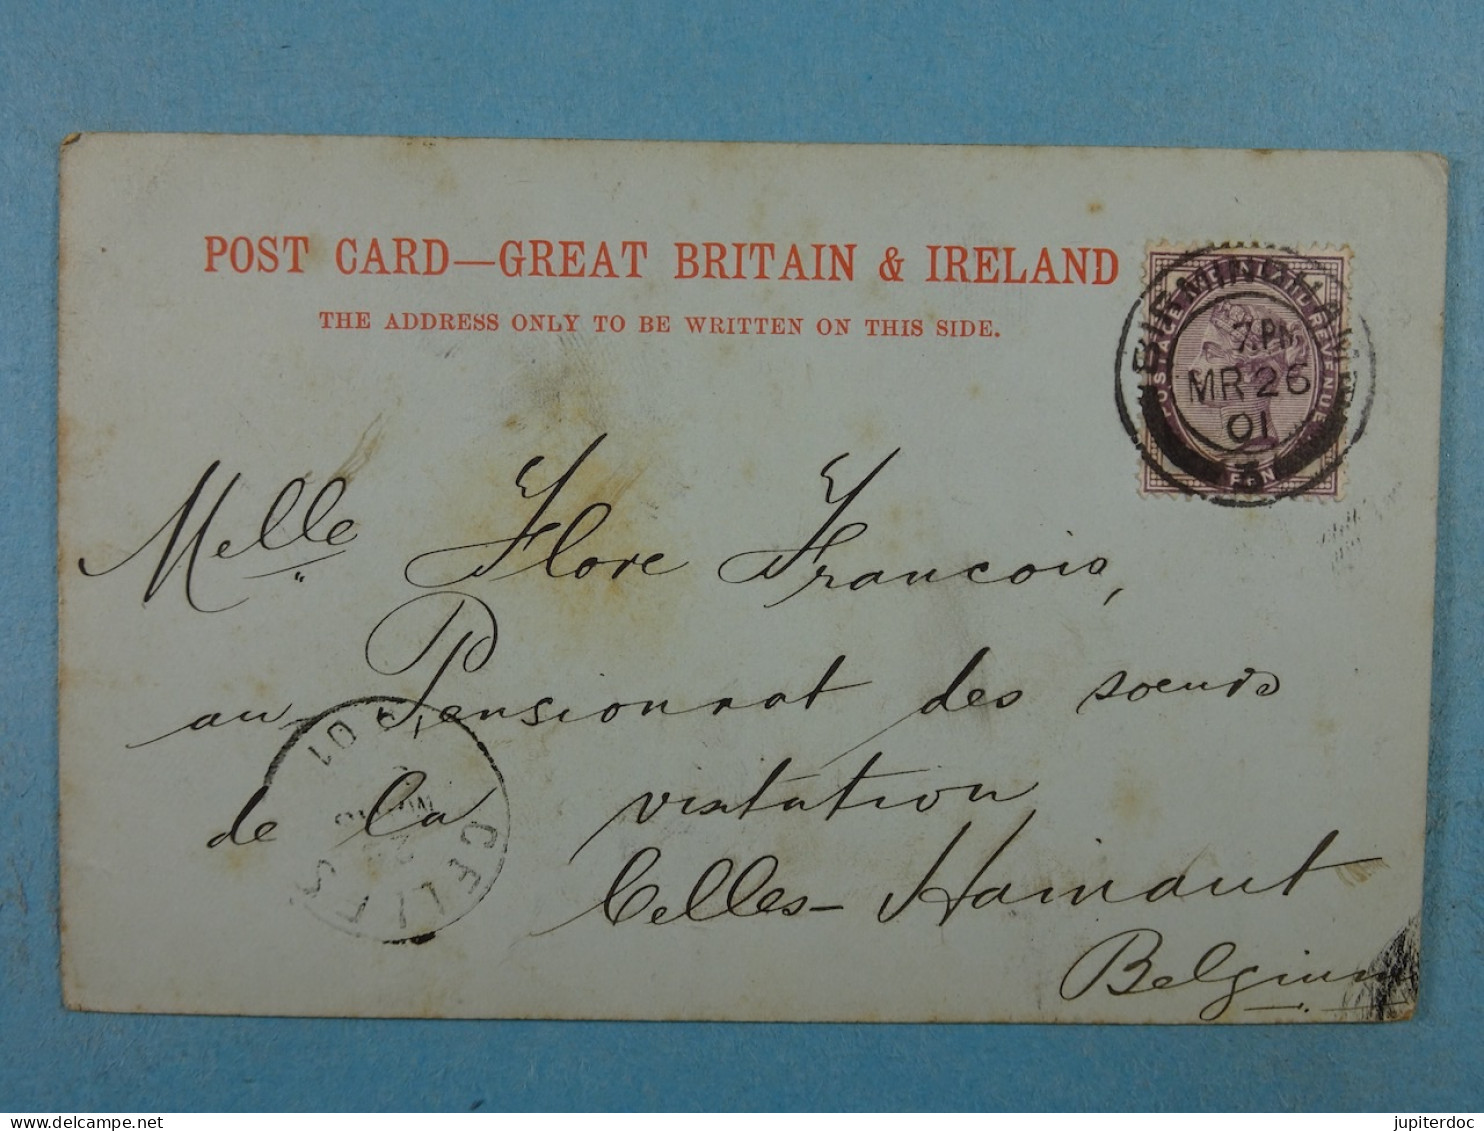 POST CARD—GREAT BRITAIN & IRELAND
THE ADDRESS ONLY TO BE WRITTEN ON THIS SIDE.
POSTAGE AND REVENUE
BIRMINGHAM
7. PM
MR 26
01
3
Melle Flore Francois,
au Pensionnat des soeurs
de la visitation
Celles - Hainaut
Belgium
CELLES
01
jupiterdoc